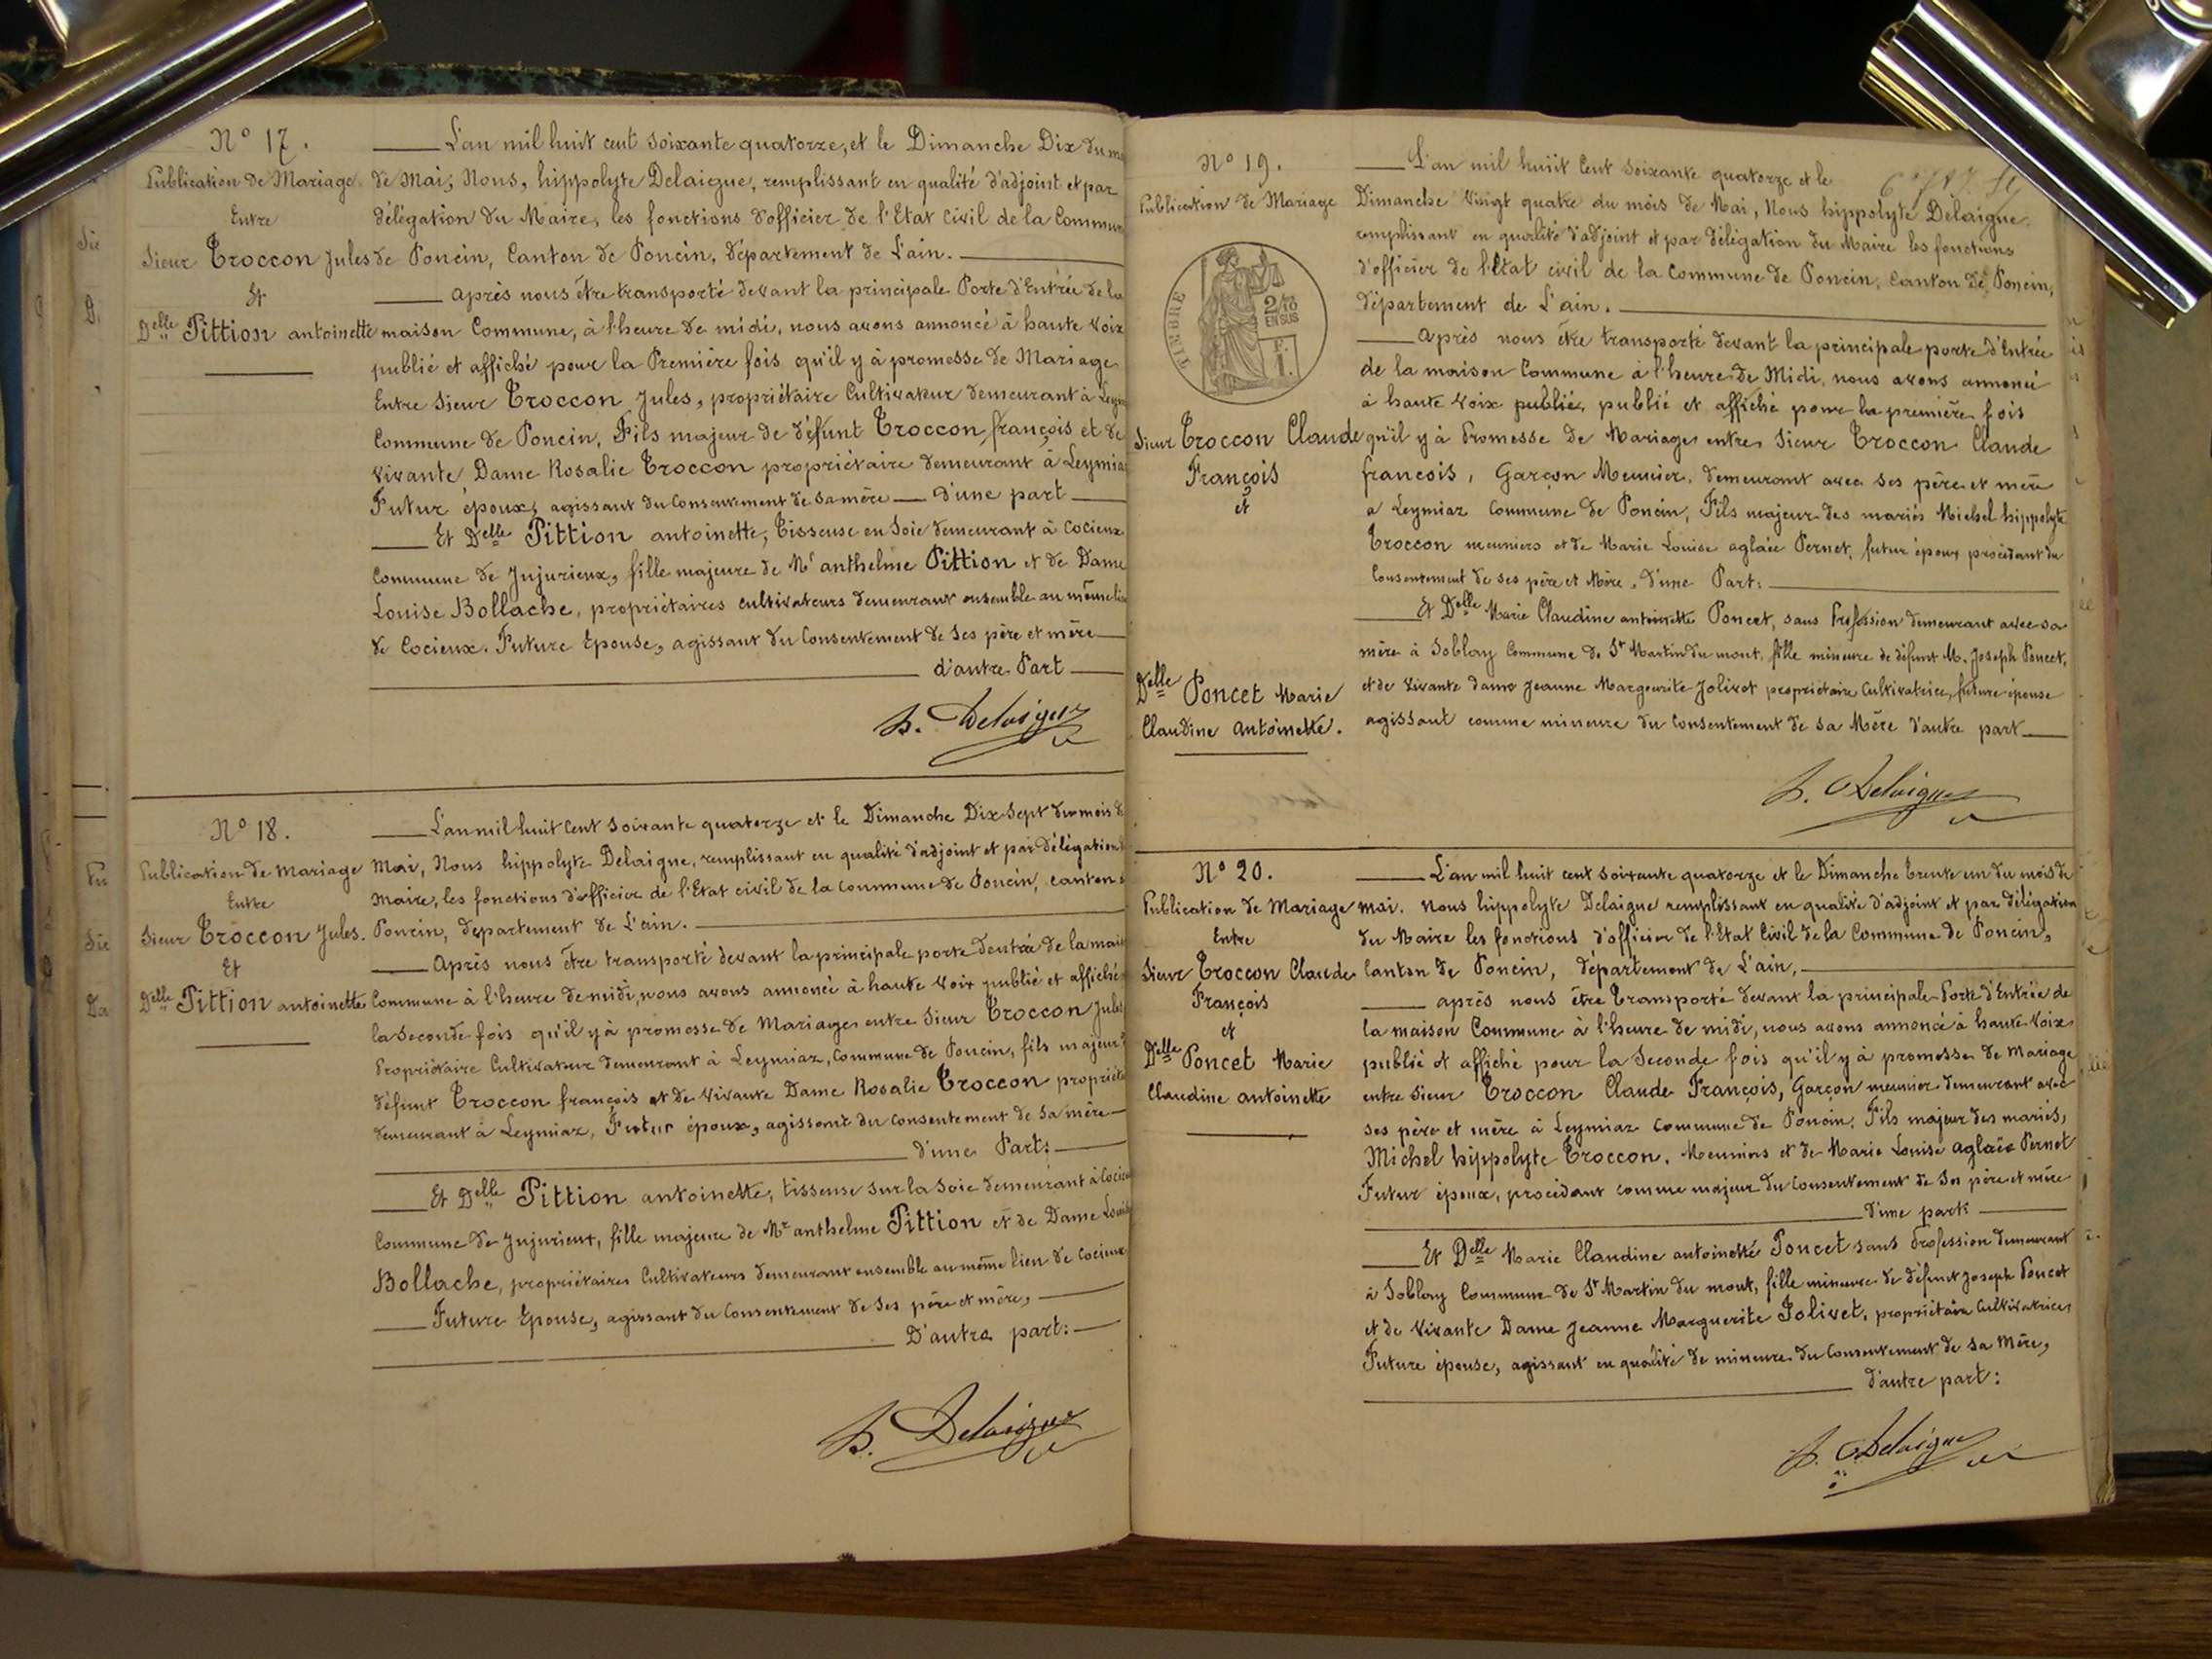 N° 17.
Publication de Mariage
Entre
Sieur Croccon Jules
Et
Delle Pittion antoinette
L'an mil huit cent soixante quatorze, et le Dimanche Dix du
de Mai, Nous, hippolyte Delaigue, remplissant en qualité d'adjoint et par
délégation du Maire, les fonctions d'officier de l'Etat civil de la Commune
de Poncin, Canton de Poncin, Département de L'ain.
après nous être transporté devant la principale Porte d'Entrée de la
maison Commune, à l'heure de midi, nous avons annoncé à haute voix
publié et affiché pour la Première fois qu'il y à promesse de Mariage
Entre Sieur Croccon Jules, propriétaire Cultivateur demeurant à
Commune de Poncin, Fils majeur de défunt Croccon françois et de
vivante Dame Rosalie Croccon propriétaire demeurant à Leymiaz
Futur époux, agissant du consentement de sa mère d'une part
Et Delle Pittion antoinette, Tisseuse en Soie demeurant à Cocieux
Commune de Jujurieux, fille majeure de Mr anthelme Pittion et de Dame
Louise Bollache, propriétaires cultivateurs demeurant ensemble au même lieu
de Cocieux. Future Epouse, agissant du Consentement de ses père et mère
d'autre Part
h. Delaigue
N° 18.
Publication de Mariage
Entre
Sieur Croccon Jules.
Et
Delle Pittion antoinette
L'an mil huit Cent Soixante quatorze et le Dimanche Dix Sept du mois de
Mai, Nous hippolyte Delaigue, remplissant en qualité d'adjoint et par délégation
Maire, les fonctions d'officier de l'Etat civil de la Commune de Poncin, canton
Poncin, département de L'ain.
Après nous être transporté devant la principale porte d'entrée de la
Commune à l'heure de midi, nous avons annoncé à haute voix publié et affiché
la Seconde fois qu'il y à promesse de Mariage entre Sieur Croccon Jules
Propriétaire Cultivateur demeurant à Leymiaz, Commune de Poncin, fils majeur
défunt Croccon françois et de vivante Dame Rosalie Croccon
demeurant à Leymiaz, Futur époux, agissant du consentement de sa mère
d'une Part:
Et Delle Pittion antoinette, tisseuse sur la Soie demeurant à
Commune de Jujurieux, fille majeure de Mr anthelme Pittion et de Dame Louise
Bollache, propriétaires Cultivateurs demeurant ensemble au même lieu de Cocieux
Future Epouse, agissant du Consentement de ses père et mère,
D'autre part:
h. Delaigue
N° 19.
Publication de Mariage
TIMBRE
2/10
EN SUS
F.
1.
Sieur Croccon Claude
François
et
Delle Poncet Marie
Claudine Antoinette.
L'an mil huit Cent Soixante quatorze et le
Dimanche Vingt quatre du mois de Mai, Nous hippolyte Delaigue
remplissant en qualité d'adjoint et par délégation du Maire les fonctions
d'officier de l'Etat civil de la Commune de Poncin, Canton de Poncin,
département de L'ain.
Après nous être transporté devant la principale porte d'Entrée
de la maison Commune à l'heure de Midi, nous avons annoncé
à haute voix publié, publié et affiché pour la première fois
qu'il y à Promesse de Mariage entre Sieur Croccon Claude
françois, Garçon Meunier, demeurant avec ses père et mère
a Leymiaz Commune de Poncin, Fils majeur des mariés Michel hippolyte
Croccon meuniers et de Marie Louise aglaée Pernet, futur époux procédant du
Consentement de ses père et Mère, d'une Part:
Et Delle Marie Claudine antoinette Poncet, sans Profession demeurant avec sa
mère à Soblay Commune de St Martin du mont, fille mineure de défunt M. Joseph Poncet,
et de vivante dame Jeanne Margeurite Jolivet propriétaire Cultivatrice, future épouse
agissant comme mineure du Consentement de sa Mère d'autre part
h. Delaigue
N° 20.
Publication de Mariage
Entre
Sieur Croccon Claude
François
et
Delle Poncet Marie
Claudine antoinette
L'an mil huit cent soixante quatorze et le Dimanche trente un du mois de
mai. Nous hippolyte Delaigue remplissant en qualité d'adjoint et par délégation
du Maire les fonctions d'officier de l'Etat Civil de la Commune de Poncin,
Canton de Poncin, département de L'ain,
après nous être transporté devant la principale Porte d'Entrée de
la maison Commune à l'heure de midi, nous avons annoncé à haute voix
publié et affiché pour la Seconde fois qu'il y à promesse de Mariage
entre Sieur Croccon Claude François, Garçon meunier demeurant avec
ses père et mère à Leymiaz Commune de Poncin. Fils majeur des mariés,
Michel hippolyte Croccon, Meuniers et de Marie Louise aglaée Pernet
Futur époux, procédant comme majeur du Consentement de Ses père et mère
d'une part:
Et Delle Marie Claudine antoinette Poncet sans Profession demeurant
à Soblay Commune de St Martin du mont, fille mineure de défunt Joseph Poncet
et de vivante Dame Jeanne Marguerite Jolivet, propriétaire Cultivatrice,
Future épouse, agissant en qualité de mineure du Consentement de sa Mère,
d'autre part:
h. Delaigue